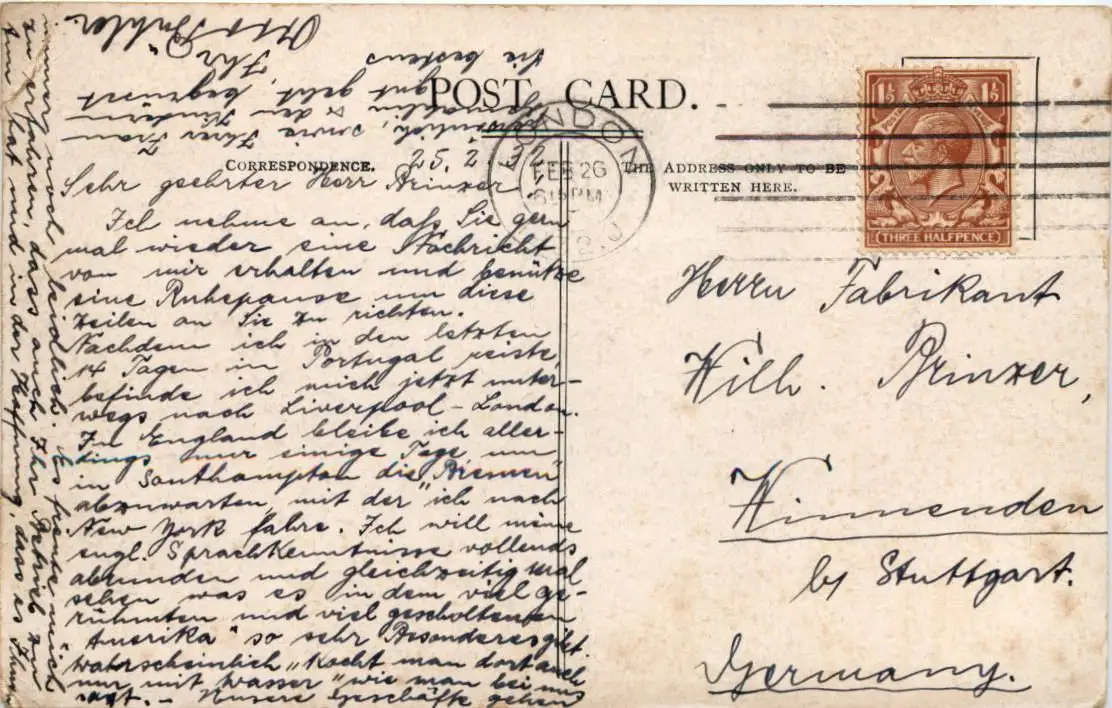 POST CARD.
CORRESPONDENCE.
THE ADDRESS ONLY TO BE
WRITTEN HERE.
LONDON
FEB 26
6 15 PM
1½ 1½
POSTAGE
THREE HALFPENCE
25.2.32
Sehr geehrter Herr Brinzer
Ich nehme an, daß Sie gern
mal wieder eine Nachricht
von mir erhalten und benütze
eine Ruhepause um diese
Zeilen an Sie zu richten.
Nachdem ich in den letzten
14 Tagen in Portugal reiste,
befinde ich mich jetzt unter-
wegs nach Liverpool - London.
In England bleibe ich aller-
dings nur einige Tage, um
in Southampton die "Bremen"
abzuwarten, mit der ich nach
New York fahre. Ich will meine
engl. Sprachkenntnisse vollends
abrunden und gleichzeitig mal
sehen was es in dem viel ge-
rühmten und viel gescholtenen
"Amerika" so sehr Besonderes gibt.
Wahrscheinlich "kocht man dort auch
nur mit Wasser" wie man bei uns
sagt. - Unsere Geschäfte gehen
immer noch leidlich. Es freute mich
zu erfahren, dass auch Ihr Betrieb zu
tun hat und in der Hoffnung, dass es Ihnen
persönlich, sowie Ihrer Frau
Gemahlin & den Kindern
gut geht, begrüsst
Sie bestens
Ihr
Otto Bühler.
Herrn Fabrikant
Wilh. Brinzer,
Winnenden
by Stuttgart.
Germany.